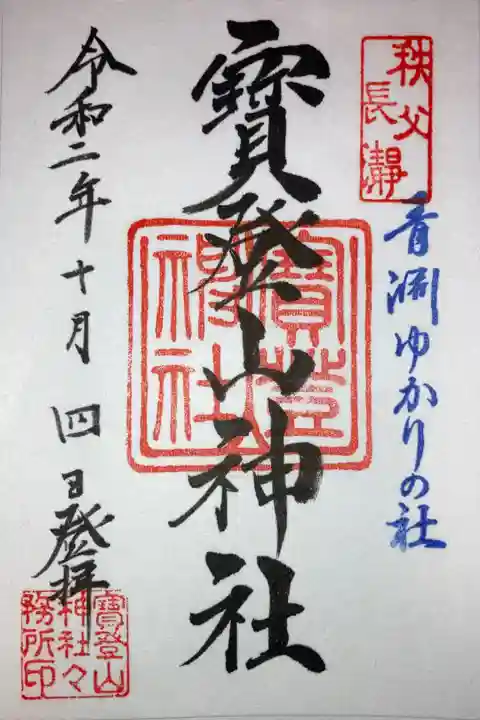 秩父
長瀞
青淵ゆかりの社
寳登山神社
寳登
神社
令和二年十月四日登拝
寳登山
神社々
務所印